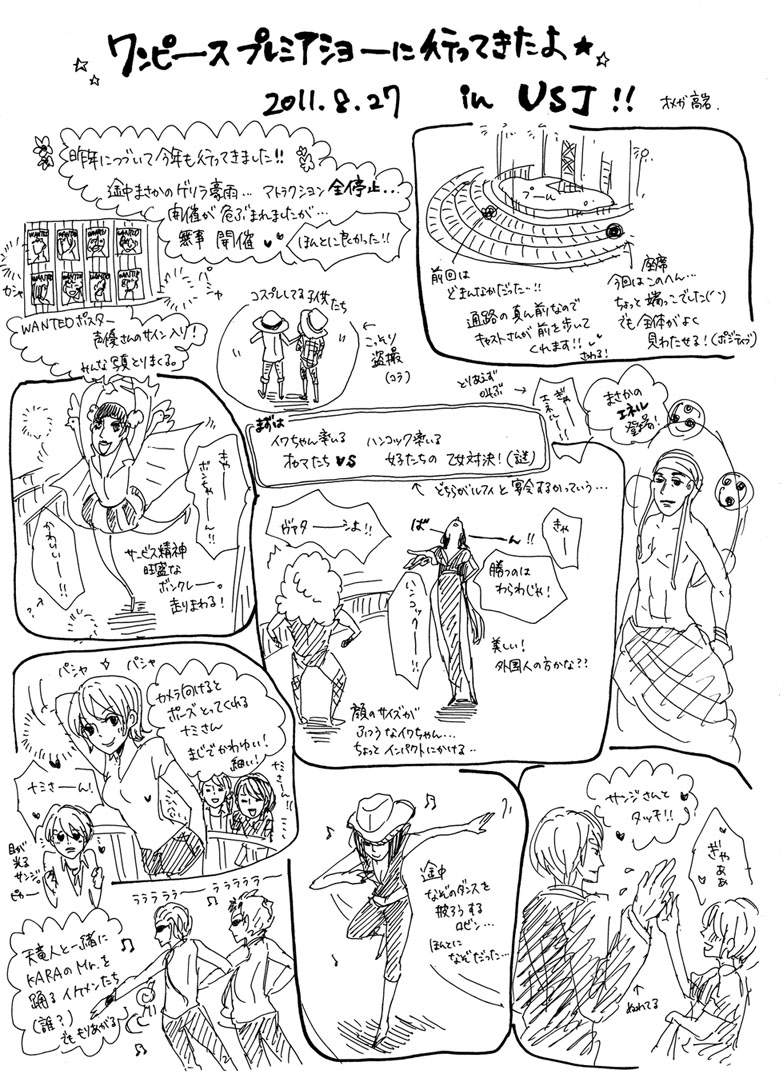 ワンピースプレミアショーに行ってきたよ★
2011.8.27 in USJ!!
オメガ高岩.
昨年につづいて今年も行ってきました!!
途中まさかのゲリラ豪雨… アトラクション全停止…
開催が危ぶまれましたが…
無事開催♥♥
ほんとに良かった!!
プール
前回は
どまんなかだった…!!
通路の真ん前なので
キャストさんが前を歩いて
くれます!!♥
さわる!
座席
今回はこのへん…
ちょっと端っこでした(´`)
でも全体がよく
見わたせる!(ポジティブ)
WANTED WANTED WANTED WANTED
WANTED WANTED WANTED WANTED
カシャ
パシャ
WANTEDポスター
声優さんのサイン入り!
みんな写真とりまくる。
コスプレしてる子供たち
こっそり
盗撮
(コラ)
とりあえず
叫ぶ
ぎゃー
エネルー!!
まさかの
エネル
登場!
まずは
イワちゃん率いる
オカマたち VS
ハンコック率いる
女子たちの乙女対決!(謎)
↑どちらがルフィと宴会するかっていう…
きゃーー
ボンちゃーーん!!
かわいいーー!!
サービス精神
旺盛な
ボンクレー。
走りまわる!
ヴァターーシよ!!
ばーーん!!
きゃー
勝つのは
わらわじゃ!
ハンコックーー!!
美しい!
外国人の方かな??
顔のサイズが
ふつうなイワちゃん…
ちょっとインパクトにかける…
パシャ パシャ
カメラ向けると
ポーズとってくれる
ナミさん
まじでかわゆい!
細い!
ナミさーん!
ナミさーん!!
目が
光る
サンジ。
ピカー
ララララララー ララララララー
天竜人と一緒に
KARAのMr.を
踊るイケメンたち
(誰?)
でもりあがる
途中
なぞのダンスを
披ろうする
ロビン…
ほんとに
なぞだった…
サンジさんと
タッチ!!
ぎゃああ
ぬれてる